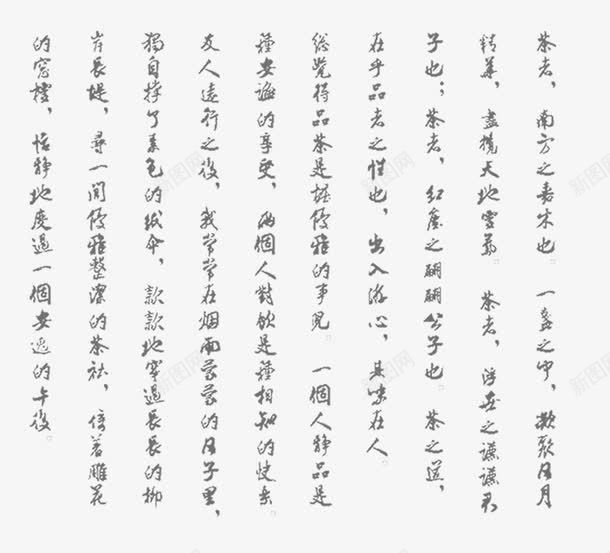 茶者，南方之嘉木也。一盏之中，欲聚日月
精華，盡攬天地靈氣。茶者，浮世之謙謙君
子也；茶者，紅塵之翩翩公子也。茶之道，
在乎品者之性也，出入游心，其味在人。
總覺得品茶是樁優雅的事兒。一個人靜品是
種安謐的享受，兩個人對飲是種相知的快樂。
友人遠行之後，我常常在烟雨蒙蒙的日子里，
獨自撐了素色的紙傘，款款地穿過長長的柳
岸長堤，尋一間優雅整潔的茶社，倚着雕花
的窗欞，恬靜地度過一個安逸的午後。
新图网